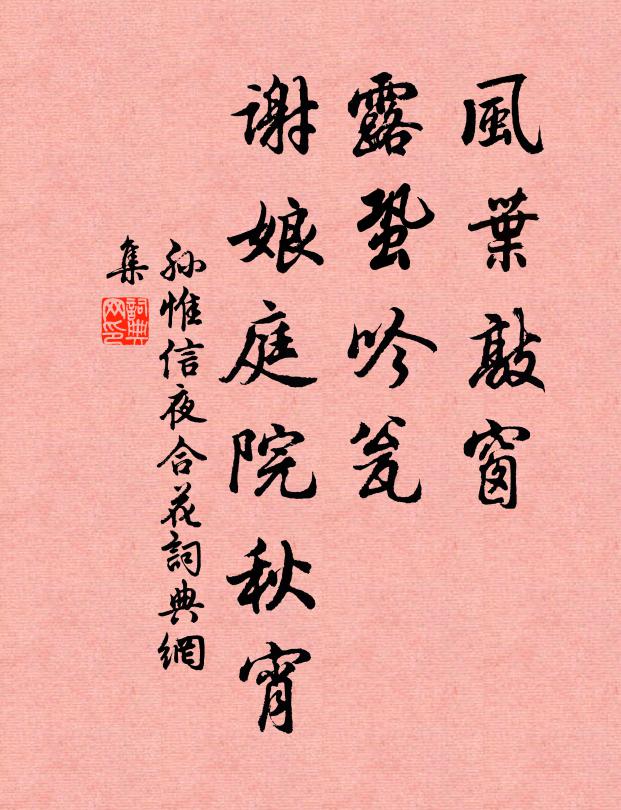 風葉敲窗
露蛩吟甃
謝娘庭院秋宵
孫惟信夜合花詞典網
集
詞典网印